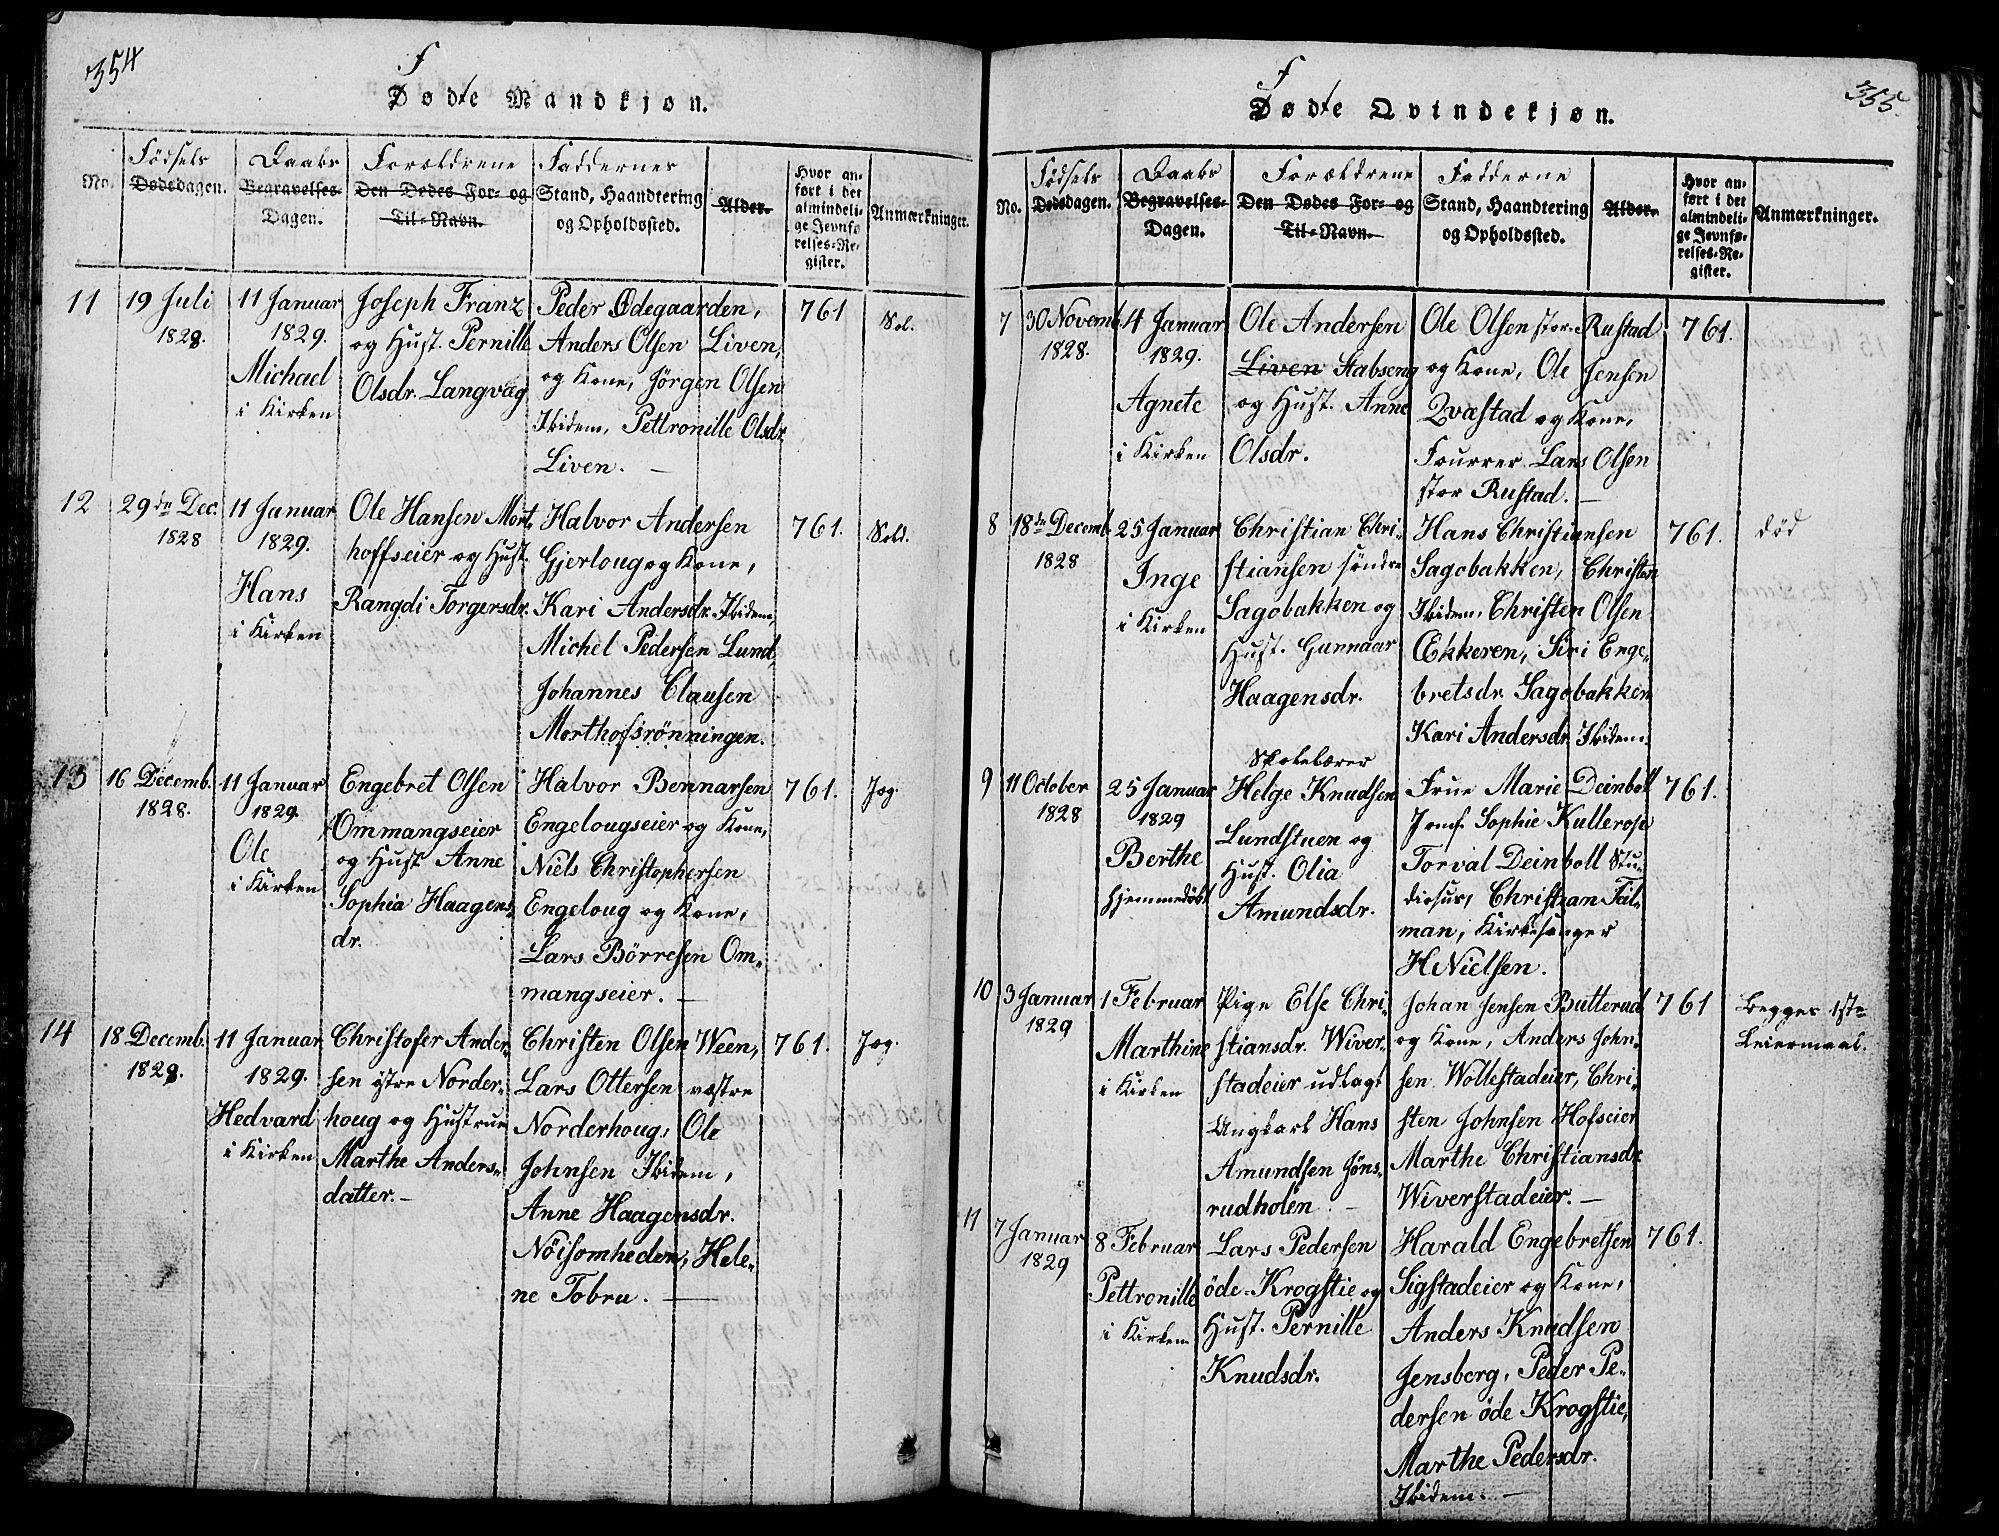 354
F
Dødte Mandkjøn.
No.
Fødsels
Dødsdagen.
Daabs
Begravelses-
Dagen.
Forældrene
Den Dødes For- og
Til-Navn.
Faddernes
Stand, Haandtering
og Opholdssted.
Alder.
Hvor an-
ført i det
almindeli-
ge Jevnfø-
relses-Re-
gister.
Anmærkninger.
11
19 Juli
1828.
11 Januar
1829.
Michael
i Kirken
Joseph Franz
og Hust. Pernille
Olsdr. Langvag
Peder Ødegaarden,
Anders Olsen Liven,
og Kone, Jørgen Olsen
Ibidem, Pettronille Olsdr.
Liven. —
761
Sol.
12
29de Dec.
1828
11 Januar
1829.
Hans
i Kirken
Ole Hansen Mort-
hoffseier og Hust.
Rangdi Torgersdr.
Halvor Andersen
Gjerloug og Kone,
Kari Andersdr. Ibidem,
Michel Pedersen Lund,
Johannes Clausen
Morthofsrønningen.
761.
Sold.
13
16 Decemb.
1828.
11 Januar
1829.
Ole
i Kirken
Engebret Olsen
Ommangseier
og Hust. Anne
Sophia Haagens-
dr.
Halvor Bennarsen
Engelougseier og Kone,
Niels Christophersen
Engeloug og Kone,
Lars Börresen Om-
mangseier. —
761.
Jog.
14
18 Decemb.
1828.
11 Januar
1829.
Hedvard
i Kirken
Christofer Ander-
sen østre Norder-
houg og Hustrue
Marthe Anders-
datter. —
Christen Olsen Ween,
Lars Ottersen vestre
Norderhoug, Ole
Johnsen Ibidem,
Anne Haagensdr.
Nöisomheden, Hele-
ne Tobru. —
761.
Jog.
355.
F
Dødte Qvindekjøn.
No.
Fødsels
Dødsdagen.
Daabs
Begravelses-
Dagen.
Forældrene
Den Dødes For- og
Til-Navn.
Fadderne
Stand, Haandtering
og Opholdssted.
Alder.
Hvor an-
ført i det
almindeli-
ge Jevnfø-
relses-Re-
gister.
Anmærkninger.
7
30 Novemb.
1828.
4 Januar
1829.
Agnete
i Kirken
Ole Andersen
Liven Stabseng
og Hust. Anne
Olsdr.
Ole Olsen stor-Rustad
og Kone, Ole Jensen
Qvæstad og Kone,
Fourrer Lars Olsen
stor Rustad. —
761.
8
18de Decemb.
1828
25 Januar
Inge
i Kirken
Christian Chri-
stiansen søndre
Sagobakken og
Hust. Gunnaar
Haagensdr.
Hans Christiansen
Sagobakken, Christen
Ibidem, Christen Olsen
Œkkeren, Siri Enge-
bretsdr. Sagobakken
Kari Andersdr. Ibidem.
761.
død
9
11 October
1828
25 Januar
1829
Berthe
hjemmedøbt
Skolelærer
Helge Knudsen
Lundstuen og
Hust. Olia
Amundsdr.
Frue Marie Deinboll
Jomf. Sophie Kullerose
Torval Deinboll Stu-
diosus, Christian Fal-
man, Kirkesanger
HNielsen.
761.
10
3 Januar
1829
1 Februar
Marthine
i Kirken
Pige Else Chri-
stiansdr. Wiver-
stadeier udlagt
Ungkarl Hans
Amundsen Jöns-
rudholen. —
Johan Jensen Butterud
og Kone, Anders John-
sen Wollestadeier, Chri-
sten Johnsen Hofseier
Marthe Christiansdr.
Wiverstadeier. —
761
Begges 1ste
Leiermaal.
11
7 Januar
1829
8 Februar
Pettronille
i Kirken
Lars Pedersen
öde-Krogstie og
Hust. Pernille
Knudsdr.
Harald Engebretsen
Sigstadeier og Kone,
Anders Knudsen
Jensberg, Peder Pe-
dersen öde Krogstie,
Marthe Pedersdr.
Ibidem. —
761.